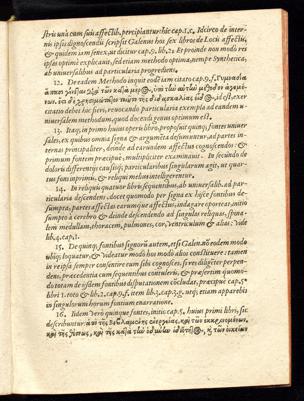 stris unà cum suis affectib. percipiantur: hic cap. 1. 5. Idcirco de inter-
nis ipsis dignoscendis scripsit Galenus hos sex libros de Locis affectis,
& quidem iam senex, ut dicitur cap. 9. lib. 2. Et proinde non modò res
ipsas optimè explicans, sed etiam methodo optima, nempe Synthetica,
ab universalibus ad particularia progrediens.
12. De eadem Methodo inquit eodem iam citato cap. 9.
citato debet hic fieri, revocando particularia exempla ad eandem u-
niversalem methodum, quod docendi genus optimum est.
13. Itaq; in primo huius operis libro, proposuit quinq; fontes univer-
sales, ex quibus omnia signa & argumenta desumuntur, ad partes in-
ternas principaliter, deinde ad earundem affectus cognoscendos: &
primum fontem præcipuè, multipliciter examinavit. In secundo de
doloris differentiis causisq; particularibus singularum agit, ut quar-
tus fons in primò, & reliqui melius intelligerentur.
14. In reliquis quatuor libris sequentibus, ab universalib. ad par-
ticularia descendens, docet quomodo per signa ex hisce fontibus de-
sumpta, partes affectas earumque affectus, indagare oporteat, initio
sumpto à cerebro & deinde descendendo ad singulas reliquas, spina-
tem medullam, thoracem, pulmones, cor, ventriculum & alias: vide
lib. 4. cap. 1.
15. De quinq; fontibus signorū autem, etsi Galen. nō eodem modo
ubiq; loquatur, & videatur modò hos modò alios constituere: tamen
in re ipsa semper consentire cum sibi cognosces, si res diligēter perpen-
des, præcedentia cum sequentibus conferueris, & præsertim quomo-
do totam de iisdem fontibus disputationem cōcludat,
in singularum horum fontium enarratione.
16. Iidem verò quinque fontes, initio cap. 5. huius primi libri, sic
describuntur.